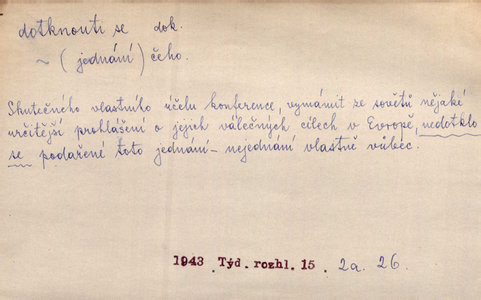 dotknouti se dok.
~ (jednání) čeho.
Skutečného vlastního účelu konference, vymámit ze sovětů nějaké
určitější prohlášení o jejich válečných cílech v Evropě, nedotklo
se podařené toto jednání – nejednání vlastně vůbec.
1943 Týd. rozhl. 15. 2a. 26.